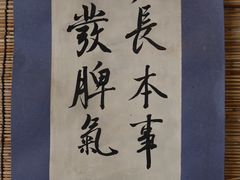 長本事
發脾氣